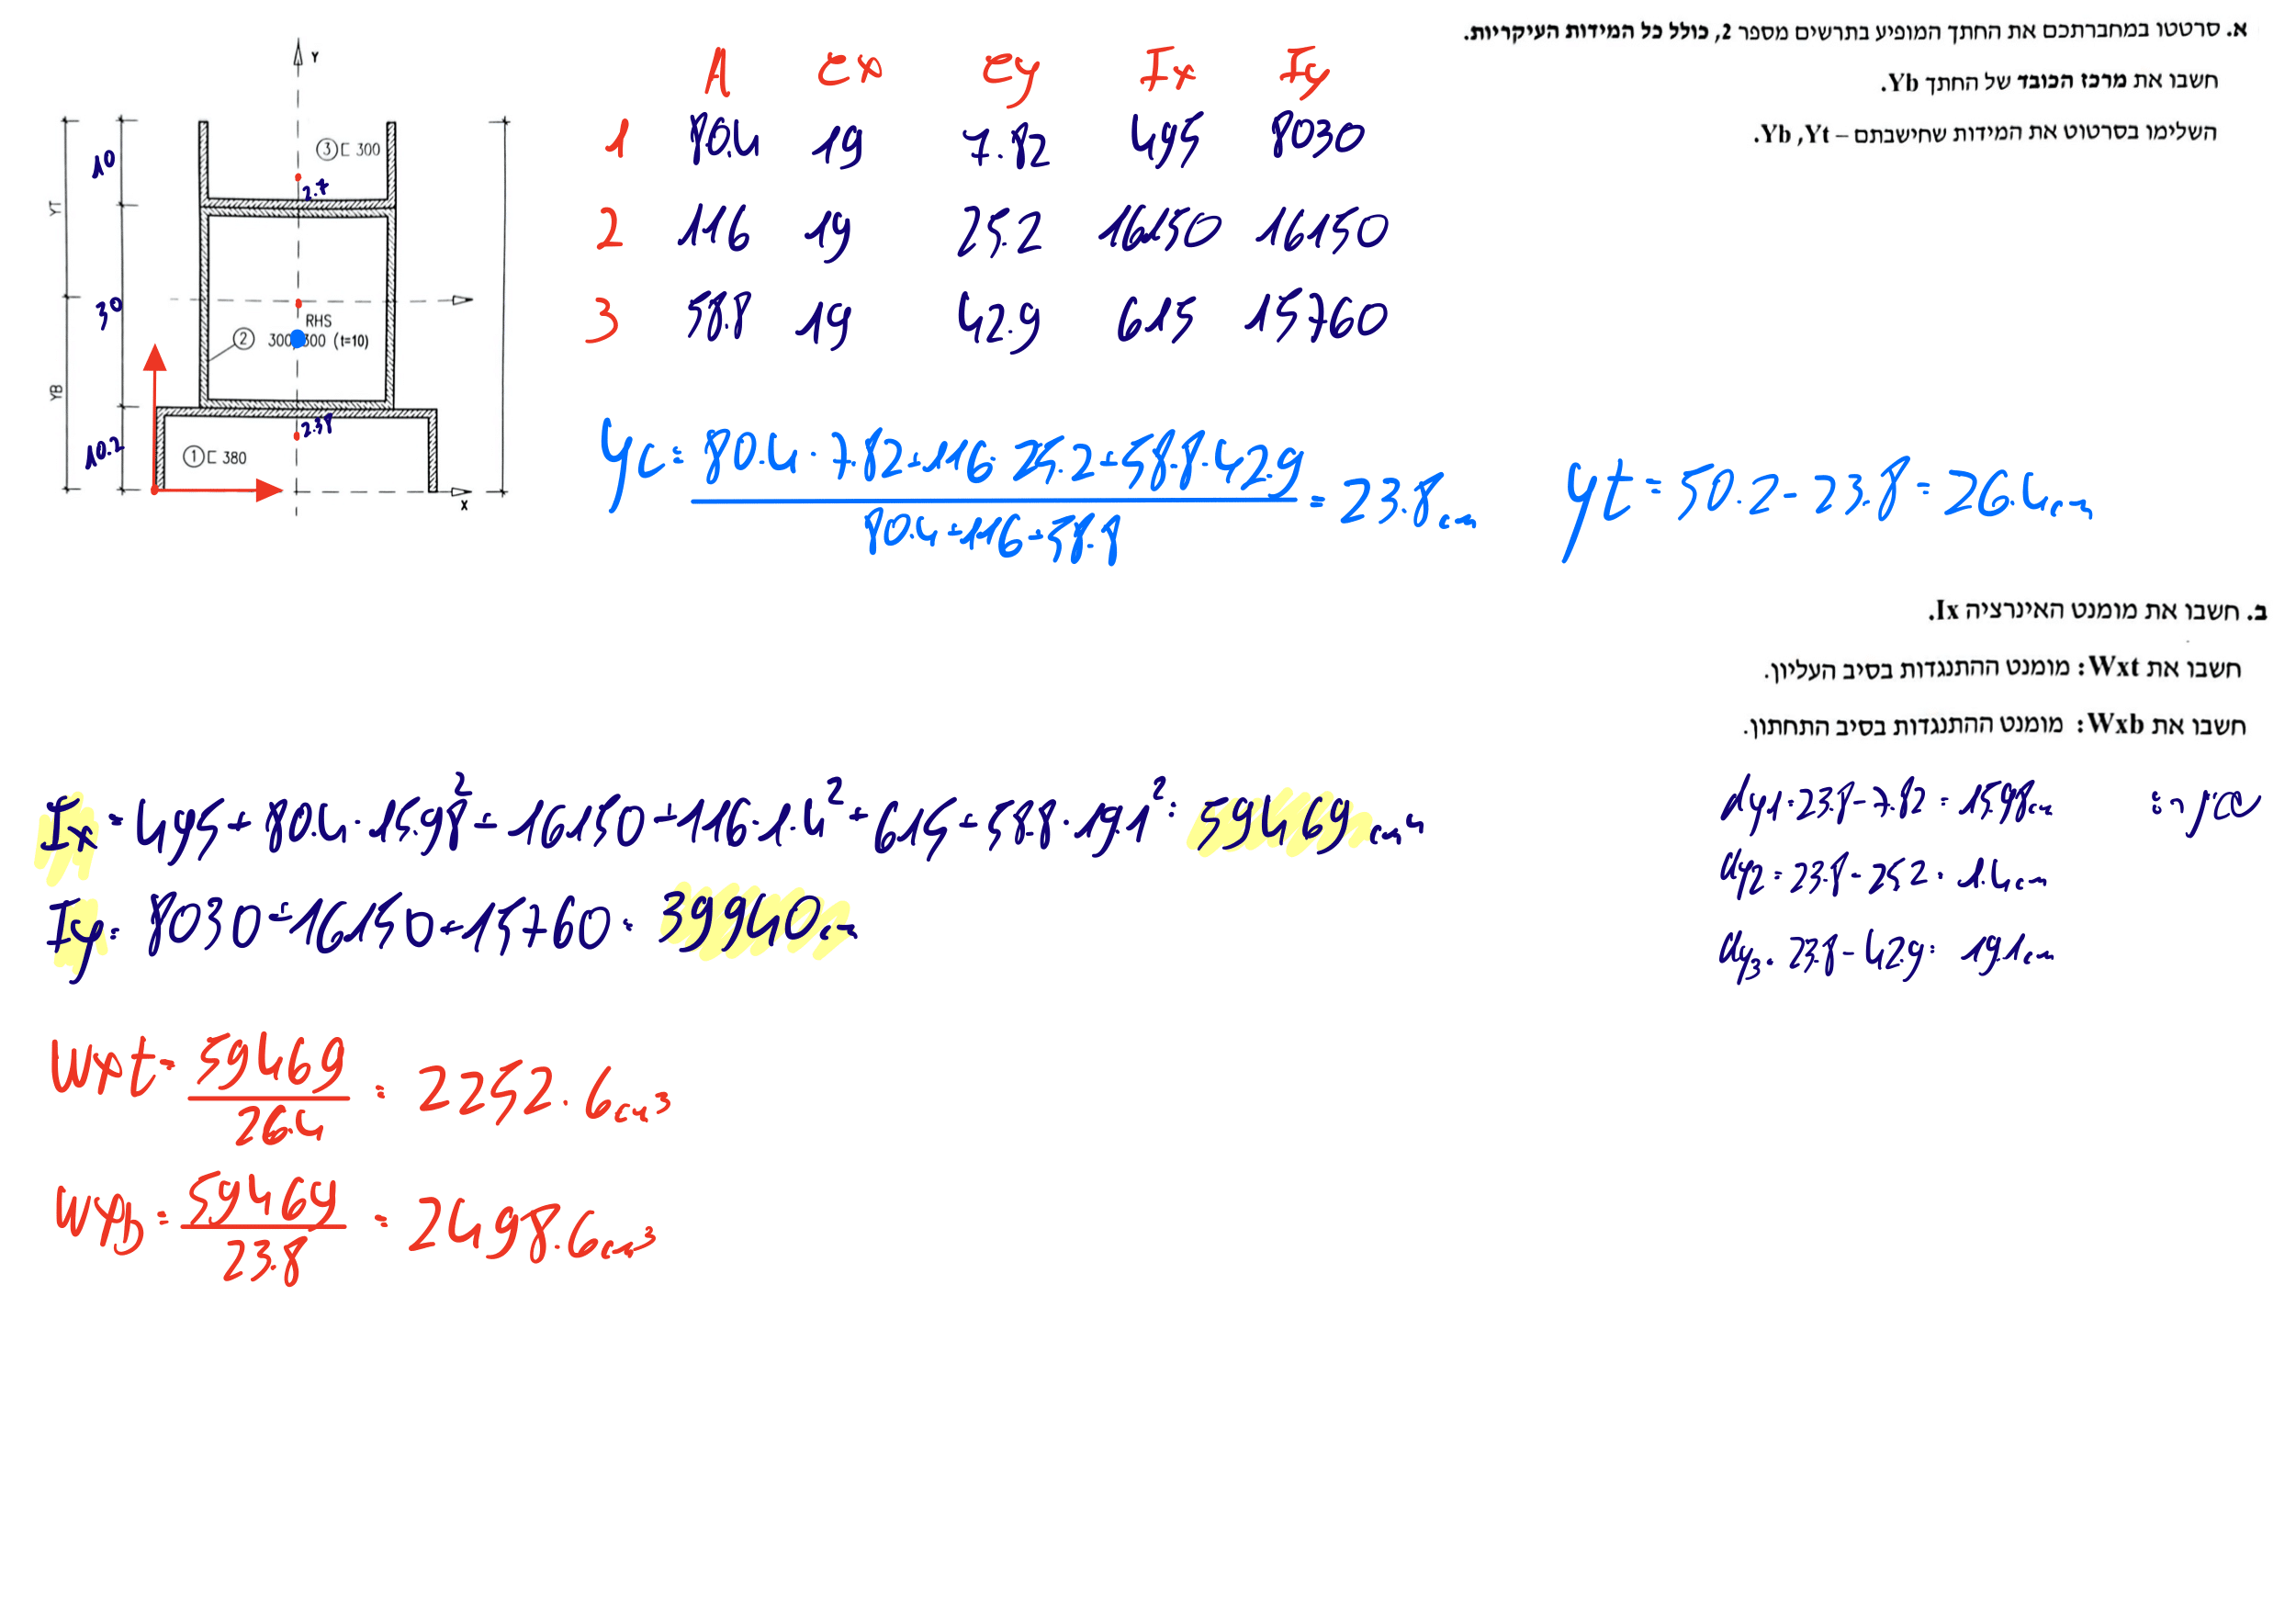 א. סרטטו במחברתכם את החתך המופיע בתרשים מספר 2, כולל כל המידות העיקריות.
חשבו את מרכז הכובד של החתך Yb.
השלימו בסרטוט את המידות שחישבתם – Yb ,Yt.
Y
③ ⊏ 300
10
2.7
YT
30
RHS
② 300/300 (t=10)
YB
2.38
10.2
① ⊏ 380
X
A ex ey Ix Iy
1 80.4 19 7.82 495 8030
2 116 19 25.2 16150 16150
3 58.8 19 42.9 615 15760
yc = 80.4 · 7.82 + 116 · 25.2 + 58.8 · 42.9
80.4 + 116 + 58.8
= 23.8 cm
yt = 50.2 - 23.8 = 26.4 cm
ב. חשבו את מומנט האינרציה Ix.
חשבו את Wxt: מומנט ההתנגדות בסיב העליון.
חשבו את Wxb: מומנט ההתנגדות בסיב התחתון.
dy1 = 23.8 - 7.82 = 15.98 cm
dy2 = 23.8 - 25.2 = 1.4 cm
dy3 = 23.8 - 42.9 = 19.1 cm
Ix = 495 + 80.4 · 15.98² + 16150 + 116 · 1.4² + 615 + 58.8 · 19.1² = 59469 cm4
Iy = 8030 + 16150 + 15760 = 39940 cm
Wxt = 59469
26.4
= 2252.6 cm³
Wxb = 59469
23.8
= 2498.6 cm³